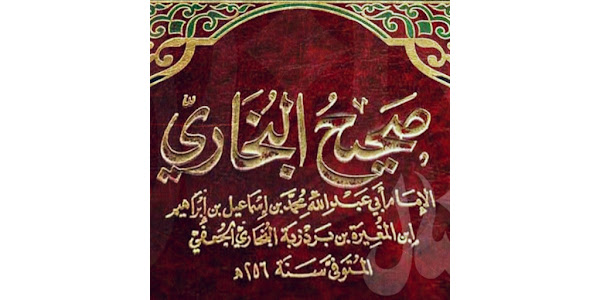 صَحِيحُ البُخَارِيِّ
الإِمَام أَبي عَبْد اللّٰه مُحَمَّد بن إِسمَاعِيل بن إِبْرَاهِيم
ابن المُغِيرَة بن بَرْدِزبَة البُخَاري الجُعْفي
المُتَوَفّى سَنَة ٢٥٦هـ